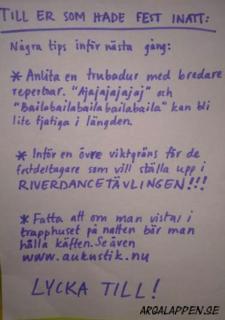 TILL ER SOM HADE FEST INATT:
Några tips inför nästa gång:
* Anlita en trubadur med bredare
reperbar. "Ajajajajajaj" och
"Bailabailabailabailabaila" kan bli
lite tjatiga i längden.
* Inför en övre viktgräns för de
festdeltagare som vill ställa upp i
RIVERDANCETÄVLINGEN!!!
* Fatta att om man vistas i
trapphuset på natten bör man
hålla käften. Se även
www.aukustik.nu
LYCKA TILL!
ARGALAPPEN.SE